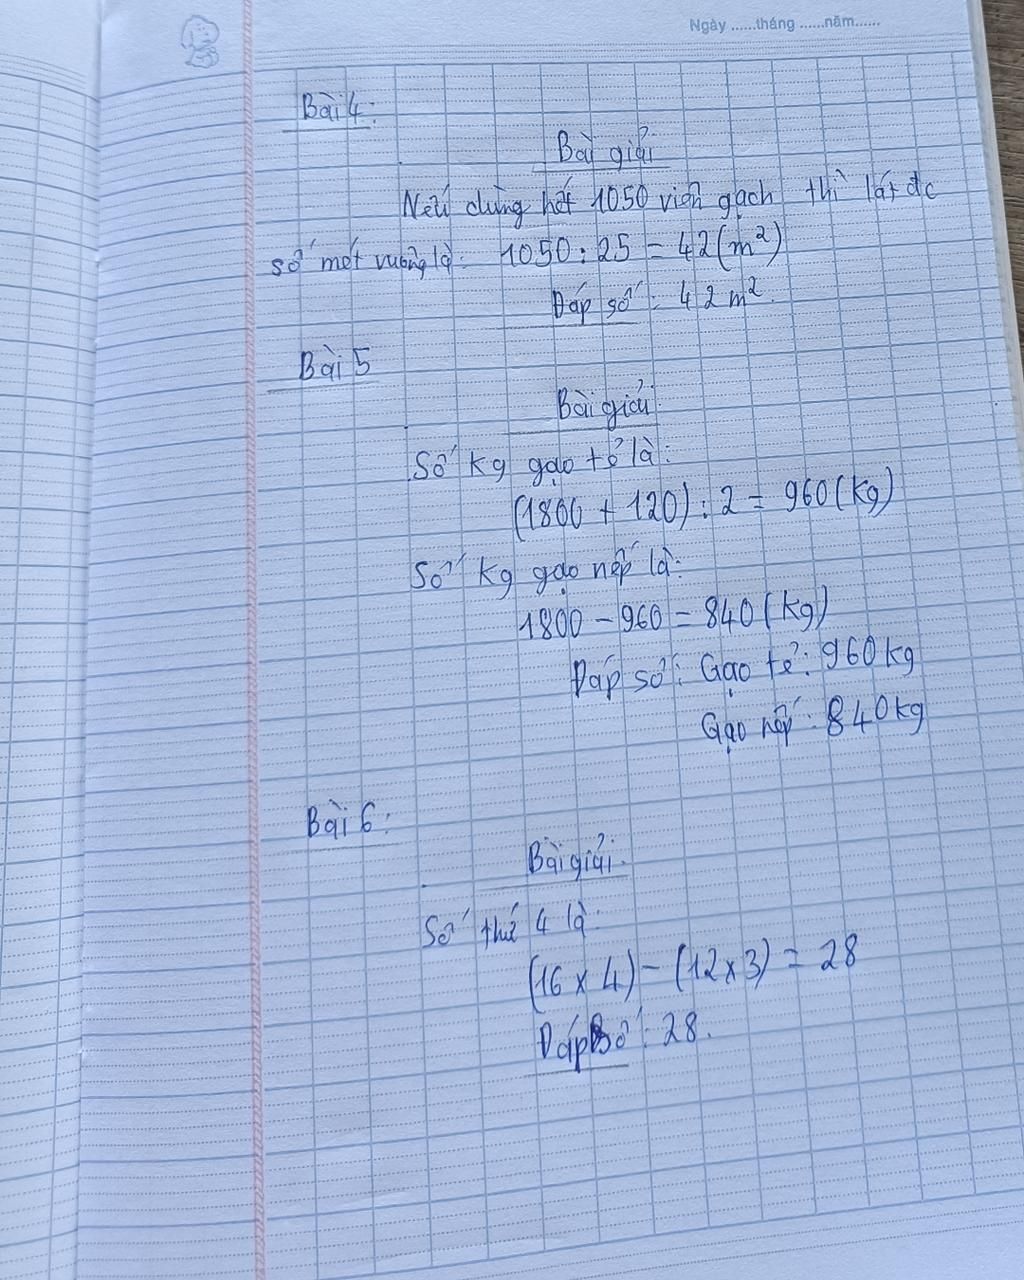 Ngày ......tháng ......năm......
Bài 4:
Bài giải
Nếu dùng hết 1050 viên gạch thì lát đc
số mét vuông là: 1050 : 25 = 42 (m²)
Đáp số : 42 m².
Bài 5
Bài giải
Số kg gạo tẻ là:
(1800 + 120) : 2 = 960 (kg)
Số kg gạo nếp là:
1800 - 960 = 840 (kg)
Đáp số: Gạo tẻ: 960kg
Gạo nếp: 840kg
Bài 6:
Bài giải.
Số thứ 4 là:
(16 x 4) - (12 x 3) = 28
Đáp số : 28.